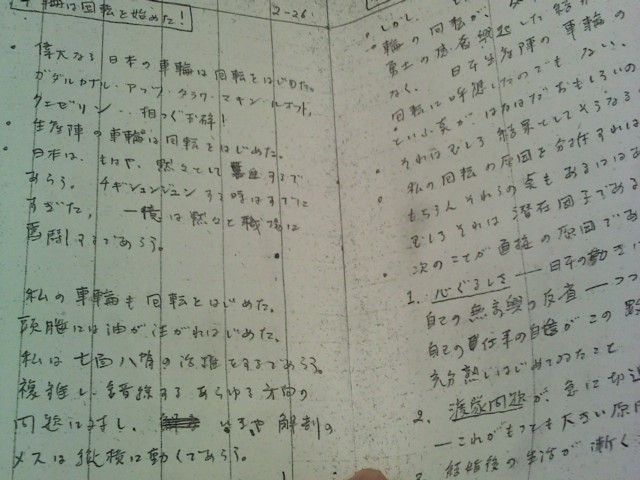 輪は回転を始めた！
2-26.
偉大なる日本の車輪は回転をはじめた。
ガダルカナル・アッツ・タラワ・マキン・ルオット、
クエゼリン‥‥相つぐ玉砕！
生産陣の車輪は回転をはじめた。
日本は、もはや、黙々として するで
あらう。チギシュンジュンする時はすでに
すぎた。一億は黙々と職場に
奮闘するであらう。
私の車輪も回転をはじめた。
頭脳には油が注がれはじめた。
私は七面八臂の活躍をするであらう。
複雑し錯綜するあらゆる方向の
問題に対し、いまや解剖の
メスは縦横に動くであらう。
しかし、
輪の回転が、
勇士の
なく、日本生産陣の車輪の
回転に呼応したのでもない。
といふ点がはなはだおもしろいの
それはむしろ結果としてそうなる
私の回転の原因を分析すれば
もちろんそれらの点もあるにはあ
むしろそれは潜在因子である
次のことが直接の原因であ
1. 心ぐるしさ―日本の動きに
自己の無為の反省―つ
自己の責任率の自覚がこの
充分熟しはじめてゐたこと
2. 問題が、急に切迫
―これがもっとも大きい原因
3. 結婚後の生活が漸く